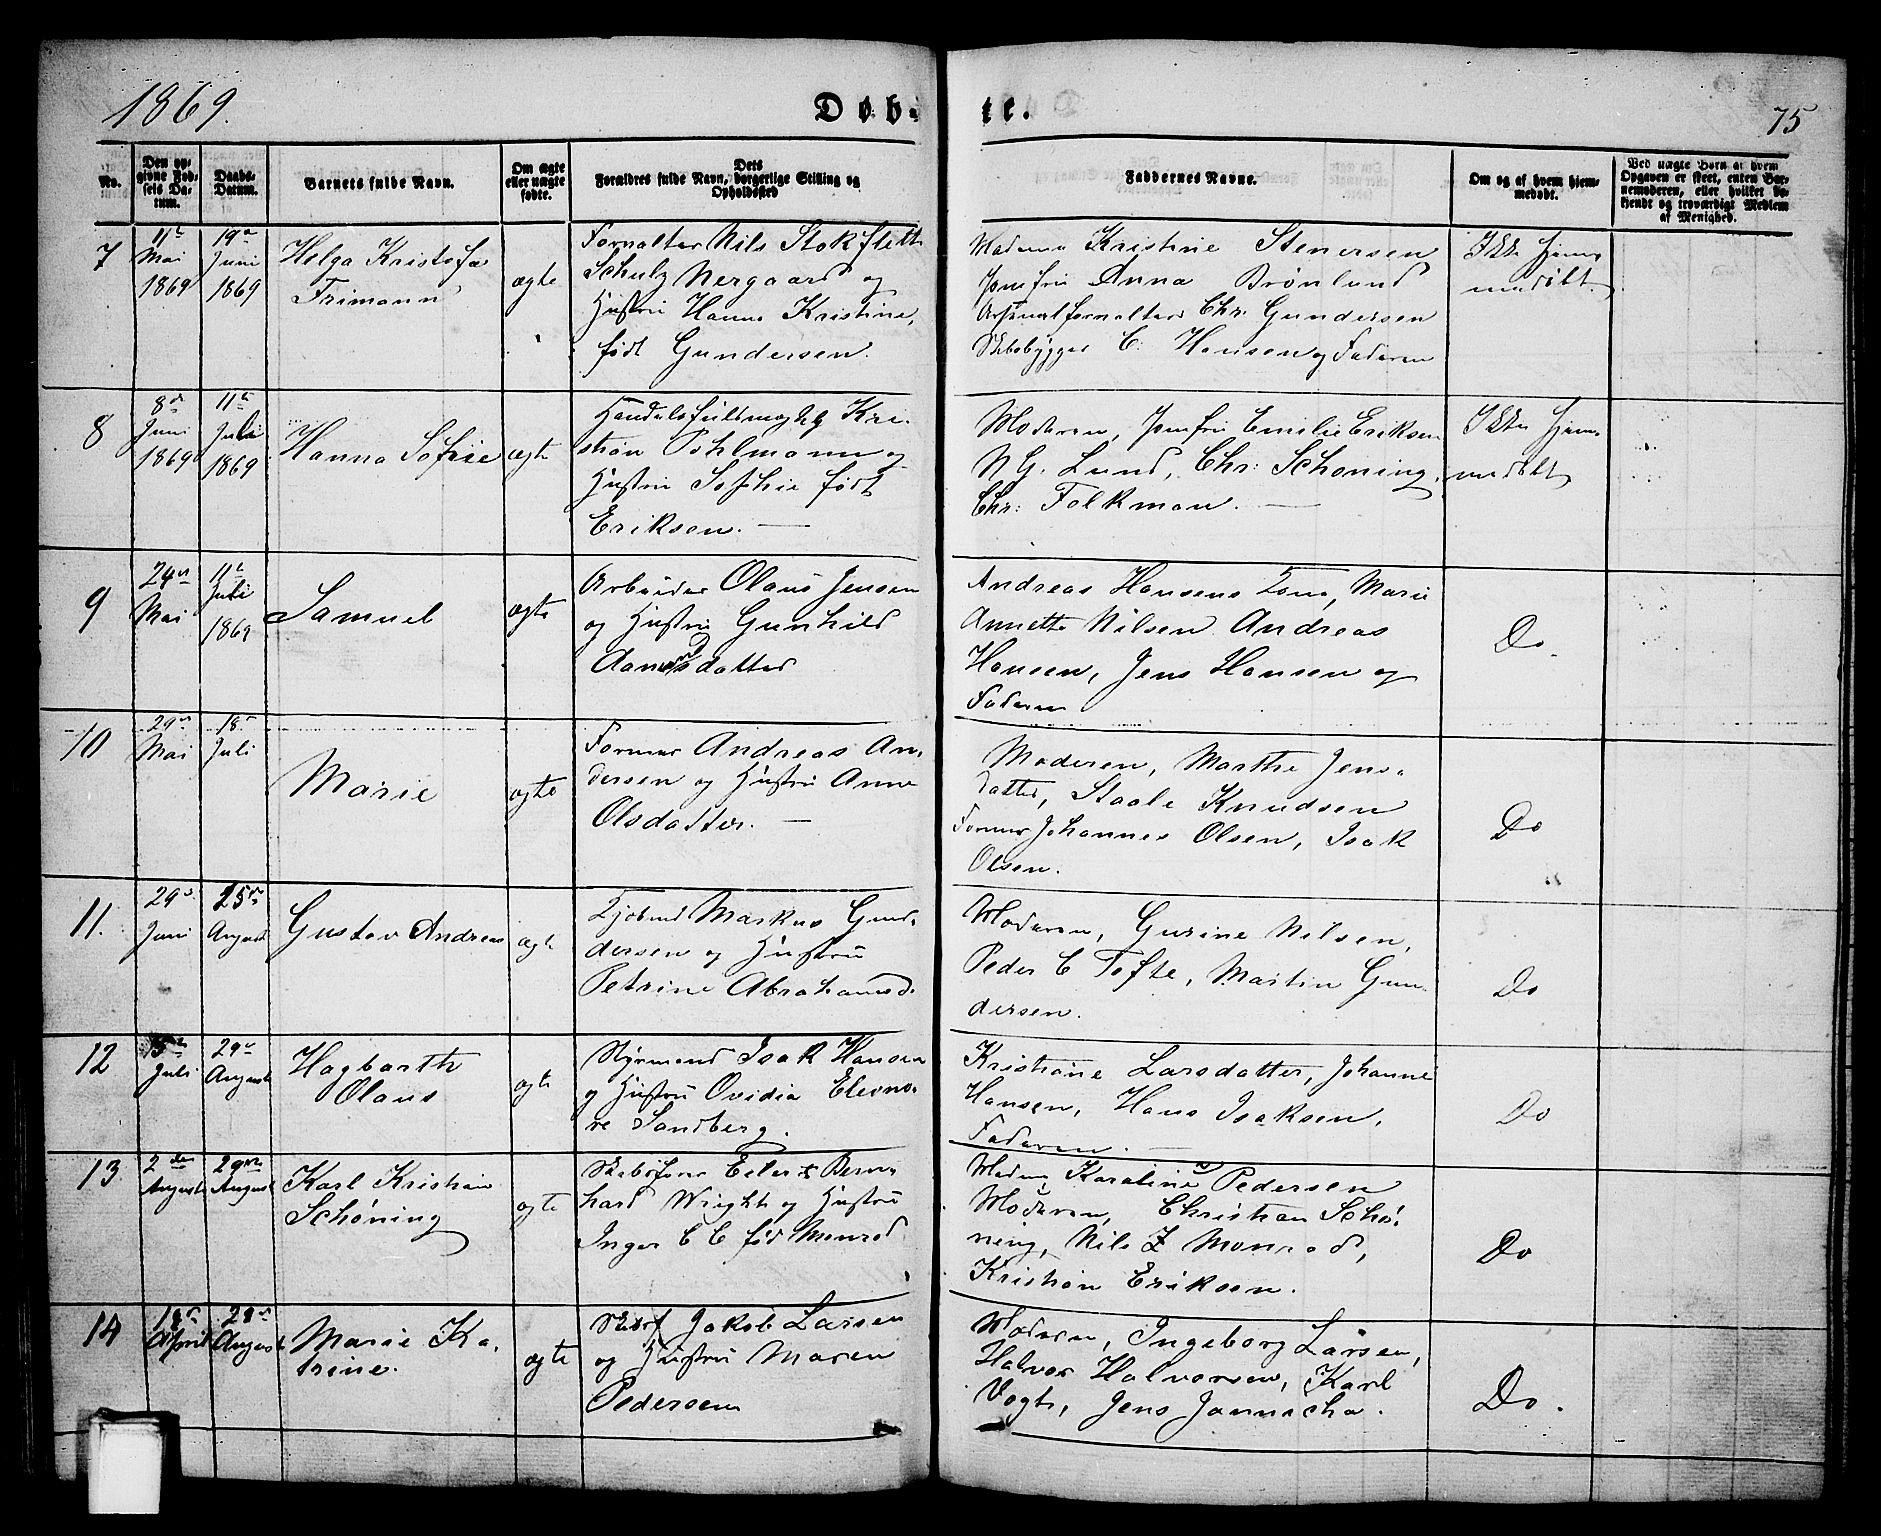 1869.
Døb-
te.
75
No.
Den op-
givne Fød-
sels Da-
tum.
Daabs-
Datum.
Barnets fulde Navn.
Om ægte
eller uægte
fødte.
Dets
Forældres fulde Navn, borgerlige Stilling og
Opholdssted
Faddernes Navne.
Om og af hvem hjem-
medøbt.
Ved uægte Børn af hvem
Opgaven er skeet, enten Bar-
nemoderen, eller hvilket be-
kendt og troværdigt Medlem
af Menighed.
7
11te
Mai
1869
19de
Juni
1869
Helga Kristofa
Frimann
ægte
Forvalter Nils Stokfleth
Schulz Nergaard og
Hustru Hanna Kristine,
født Gundersen.
Madame Kristine Stenersen
Jomfru Anna Brønlund
Arsenalforvalter Chr. Gundersen
Skibsbygger C. Hansen og Faderen
Ikke hjem-
medøbt.
8
8de
Juni
1869
11te
Juli
1869
Hanna Sofie
ægte
Handelsfuldmægtig Kri-
stian Pohlmann og
Hustru Sophie født
Eriksen. —
Moderen, Jomfru Emilie Eriksen
N G. Lund, Chr: Schøning,
Chr: Folkman. —
Ikke hjem-
medøbt
9
24de
Mai
11te
Juli
1869
Samuel
ægte
Arbeider Olaus Jensen
og Hustru Gunhild
datter
Andreas Hansens Kone, Marie
Annette Nilsen Andreas
Hansen, Jens Hansen og
Faderen
Do.
10
29de
Mai
18de
Juli
Marie
ægte
Former Andreas An-
dersen og Hustru Anne
Olsdatter. —
Moderen, Marthe Jens-
datter, Staale Knudsen
Former Johannes Olsen, Isak
Olsen.
Do
11.
29de
Juni
25de
August
Gustav Andreas
ægte
Markus Gun-
dersen og Hustru
Petrine Abrahamsd.
Moderen, Gurine Nilsen,
Peder C Tofte, Martin Gun-
dersen.
Do
12
15de
Juli
29de
August
Hagbarth
Olaus
ægte
Styrmand Isak Hansen
og Hustru Ovidia Eleono-
re Sandberg.
Kristiane Larsdatter, Johanne
Hansen, Hans Isaksen,
Faderen. —
Do
13
2den
August
29de
August
Karl Kristian
Schøning
ægte
Skibsfører Eiler Bern-
hard Wright og Hustru
Inger C C fød Monrad
Madam Karoline Pedersen
Moderen, Christian Schø-
ning, Nils Z Monrad,
Kristian Eriksen.
Do
14
18de
April
29de
August
Marie Ka-
trine.
ægte
Skibsf Jakob Larsen
og Hustru Maren
Pedersen
Moderen, Ingeborg Larsen,
Halvor Halvorsen, Karl
Vogt, Jens
Do.